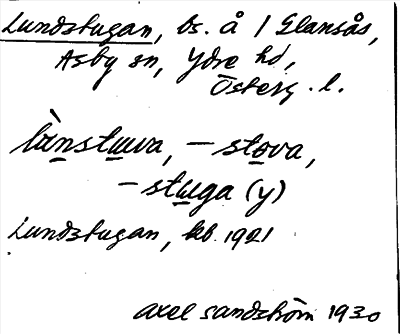 Lundstugan, bs. å / Glansås,
Asby sn, Ydre hd,
Österg. l.
lùnstuva, – stova,
– stuga (y)
Lundstugan, kb. 1921
Axel Sandström 1930